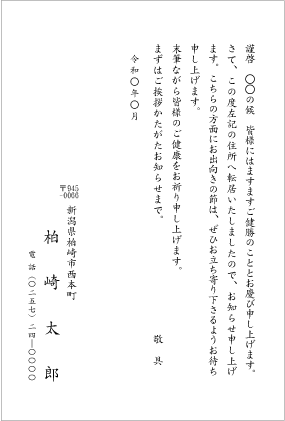 謹啓　〇〇の候　皆様にはますますご健勝のこととお慶び申し上げます。
さて、この度左記の住所へ転居いたしましたので、お知らせ申し上げ
ます。こちらの方面にお出向きの節は、ぜひお立ち寄り下さるようお待ち
申し上げます。
末筆ながら皆様のご健康をお祈り申し上げます。
まずはご挨拶かたがたお知らせまで。
敬具
令和〇年〇月
〒945
-0066
新潟県柏崎市西本町
柏崎太郎
電話（〇二五七）二四ー〇〇〇〇